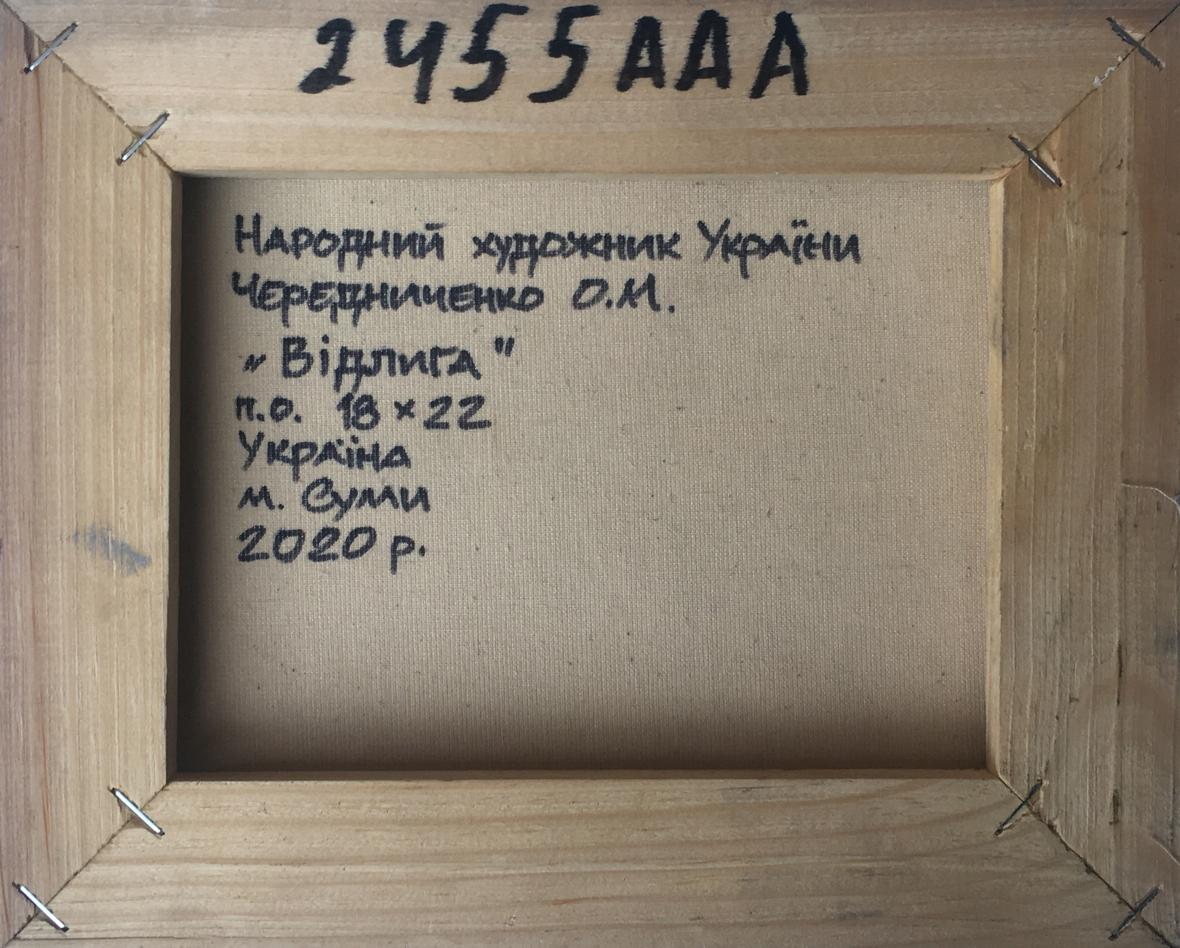 2455AAA
Народний художник України
Чередниченко О.М.
„Відлига"
п.о. 18×22
Україна
м. Суми
2020 р.